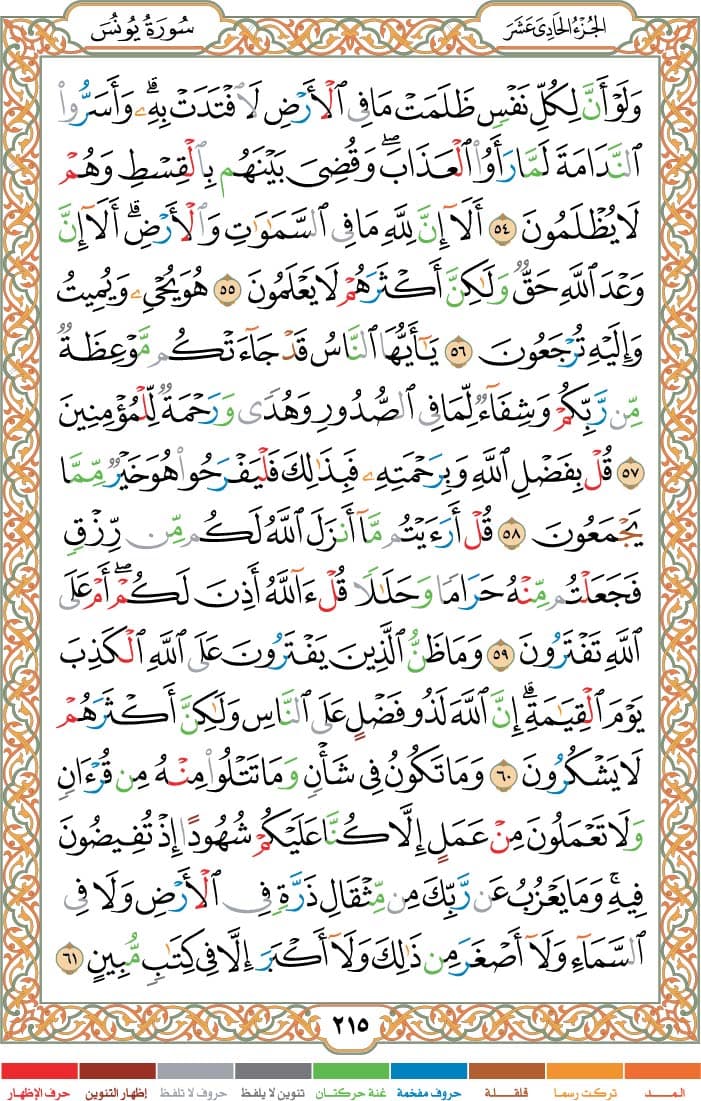 الجُزْءُ الحَادِي عَشَرَ
سُورَةُ يُونُسَ
وَلَوْ أَنَّ لِكُلِّ نَفْسٍ ظَلَمَتْ مَا فِي الْأَرْضِ لَافْتَدَتْ بِهِۦۗ وَأَسَرُّوا۟
النَّدَامَةَ لَمَّا رَأَوُا۟ الْعَذَابَۖ وَقُضِيَ بَيْنَهُم بِالْقِسْطِ وَهُمْ
لَا يُظْلَمُونَ ٥٤ أَلَآ إِنَّ لِلَّهِ مَا فِي السَّمَٰوَٰتِ وَالْأَرْضِۗ أَلَآ إِنَّ
وَعْدَ اللَّهِ حَقٌّ وَلَٰكِنَّ أَكْثَرَهُمْ لَا يَعْلَمُونَ ٥٥ هُوَ يُحْيِۦ وَيُمِيتُ
وَإِلَيْهِ تُرْجَعُونَ ٥٦ يَٰٓأَيُّهَا النَّاسُ قَدْ جَآءَتْكُم مَّوْعِظَةٌ
مِّن رَّبِّكُمْ وَشِفَآءٌ لِّمَا فِي الصُّدُورِ وَهُدًى وَرَحْمَةٌ لِّلْمُؤْمِنِينَ
٥٧ قُلْ بِفَضْلِ اللَّهِ وَبِرَحْمَتِهِۦ فَبِذَٰلِكَ فَلْيَفْرَحُوا۟ هُوَ خَيْرٌ مِّمَّا
يَجْمَعُونَ ٥٨ قُلْ أَرَءَيْتُم مَّآ أَنزَلَ اللَّهُ لَكُم مِّن رِّزْقٍ
فَجَعَلْتُم مِّنْهُ حَرَامًا وَحَلَٰلًا قُلْ ءَآللَّهُ أَذِنَ لَكُمْۖ أَمْ عَلَى
اللَّهِ تَفْتَرُونَ ٥٩ وَمَا ظَنُّ الَّذِينَ يَفْتَرُونَ عَلَى اللَّهِ الْكَذِبَ
يَوْمَ الْقِيَٰمَةِۗ إِنَّ اللَّهَ لَذُو فَضْلٍ عَلَى النَّاسِ وَلَٰكِنَّ أَكْثَرَهُمْ
لَا يَشْكُرُونَ ٦٠ وَمَا تَكُونُ فِي شَأْنٍ وَمَا تَتْلُوا۟ مِنْهُ مِن قُرْءَانٍ
وَلَا تَعْمَلُونَ مِنْ عَمَلٍ إِلَّا كُنَّا عَلَيْكُمْ شُهُودًا إِذْ تُفِيضُونَ
فِيهِۚ وَمَا يَعْزُبُ عَن رَّبِّكَ مِن مِّثْقَالِ ذَرَّةٍ فِي الْأَرْضِ وَلَا فِي
السَّمَآءِ وَلَآ أَصْغَرَ مِن ذَٰلِكَ وَلَآ أَكْبَرَ إِلَّا فِي كِتَٰبٍ مُّبِينٍ ٦١
٢١٥
المــــد تركت رسما قلقــلة حروف مفخمة غنة حركتـان تنوين لا يلفظ حروف لا تلفظ إظهار التنوين حرف الإظهار